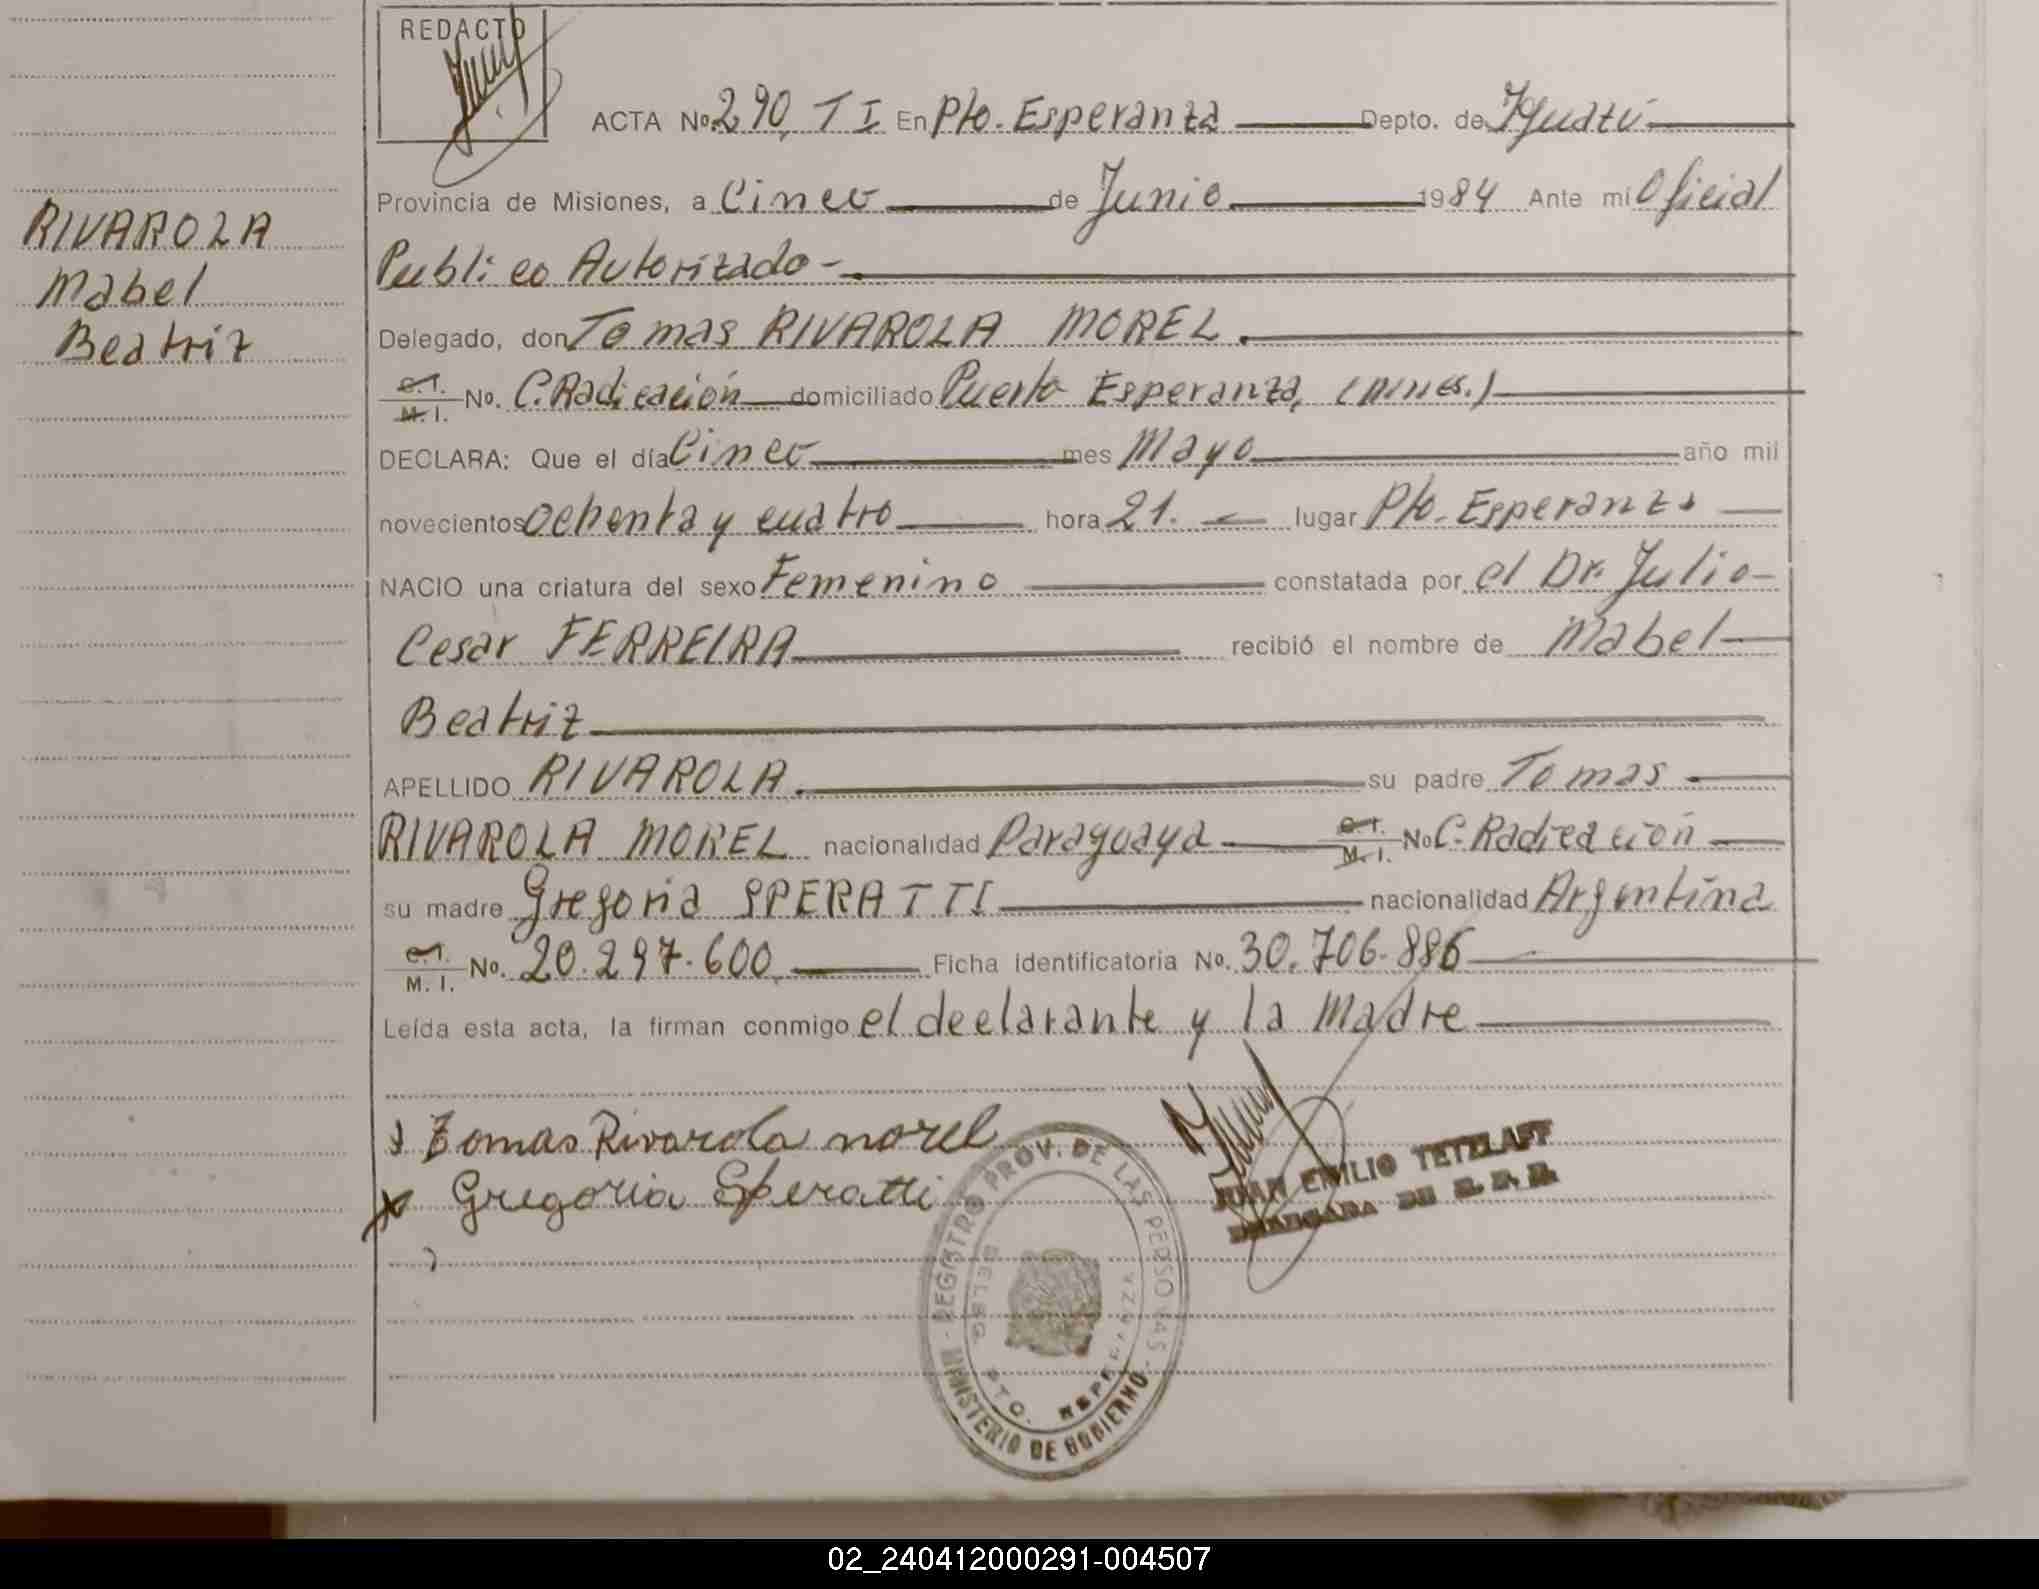 REDACTO
ACTA No. 290, T I En Pto. Esperanza Depto. de Iguazú
Provincia de Misiones, a Cinco de Junio 1984 Ante mi Oficial
Publico Autorizado-
Delegado, don Tomas RIVAROLA MOREL.
C.I. M.I. No. C.Radicación domiciliado Puerto Esperanza, (Mnes.)
DECLARA: Que el día Cinco mes Mayo año mil
novecientos ochenta y cuatro hora 21. lugar Pto. Esperanza
NACIO una criatura del sexo Femenino constatada por el Dr. Julio
Cesar FERREIRA recibió el nombre de Mabel
Beatriz
APELLIDO RIVAROLA. su padre Tomas
RIVAROLA MOREL nacionalidad Paraguaya C.I. M.I. No C. Radicación
su madre Gregoria SPERATTI nacionalidad Argentina
C.I. M.I. No. 20.297.600 Ficha identificatoria No. 30.706.886
Leída esta acta, la firman conmigo el declarante y la Madre
RIVAROLA
Mabel
Beatriz
x Tomas Rivarola morel
x Gregoria Speratti
JUAN EMILIO TETZLAFF
REGISTRO PROV. DE LAS PERSONAS
MINISTERIO DE GOBIERNO
02_240412000291-004507